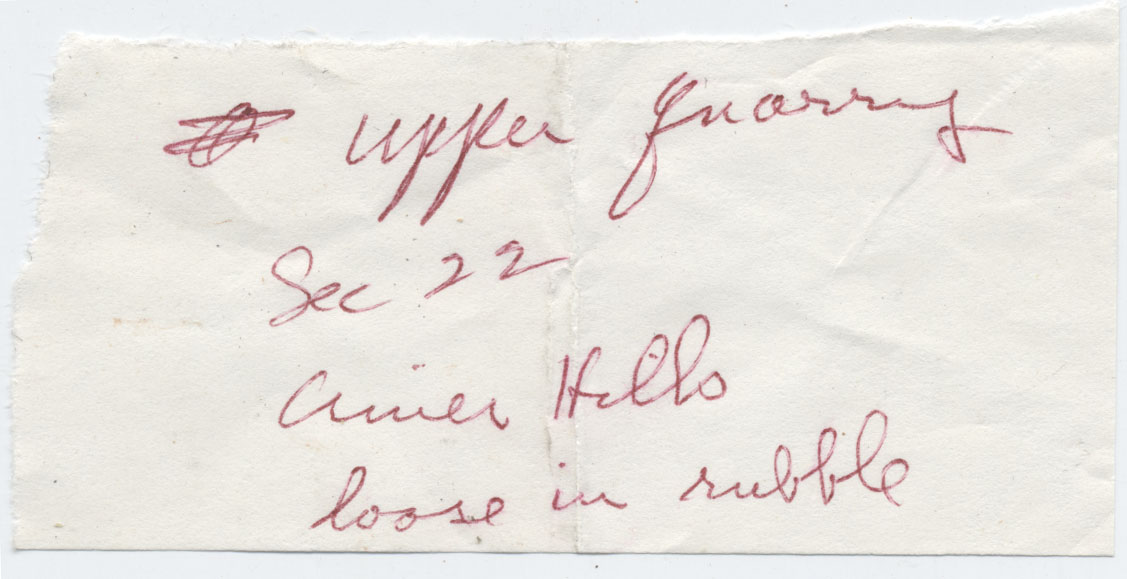 upper quarry
Sec 22
Hills
loose in rubble